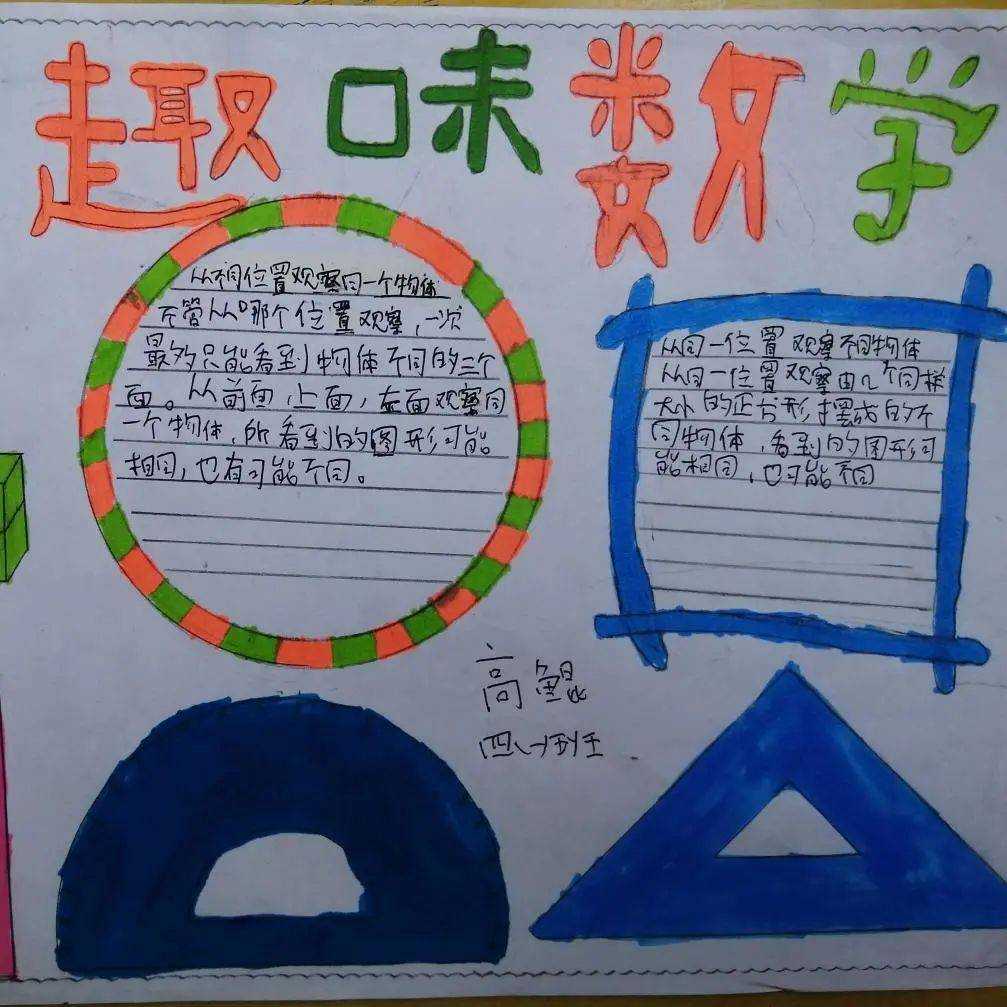 趣味数学
从不同位置观察同一个物体
不管从哪个位置观察，一次
最多只能看到物体不同的三个
面。从前面，上面，左面观察同
一个物体，所看到的图形可能
相同，也有可能不同。
从同一位置观察不同物体
从同一位置观察由几个同样
大小的正方形摆成的不
同物体，看到的图形可
能相同，也可能不同
高鲲
四(一)班